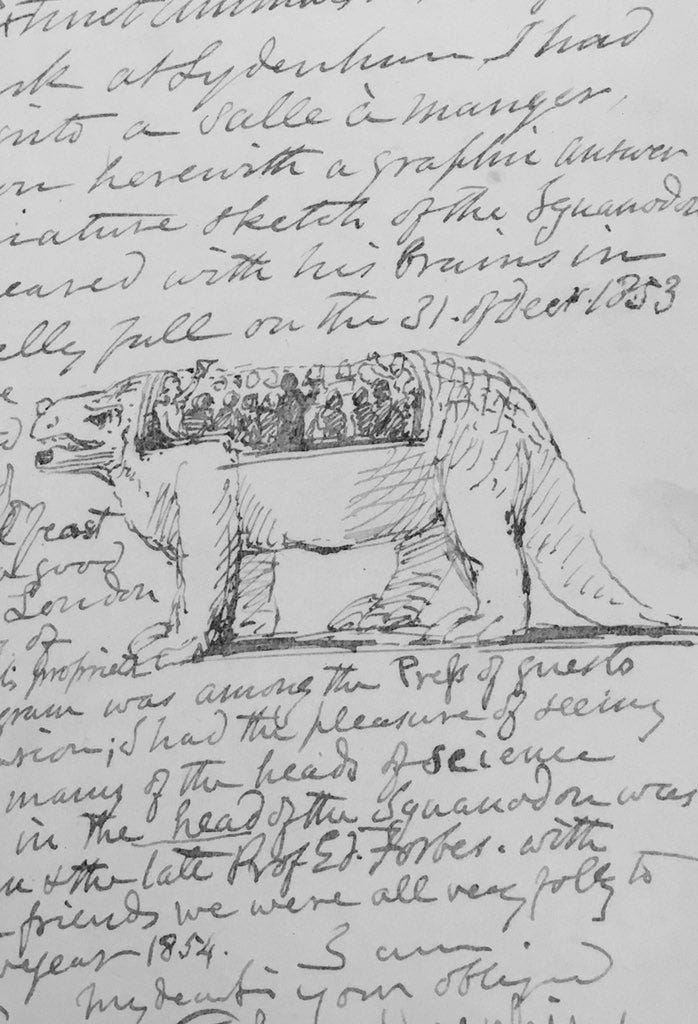 at Sydenham, I had
into a Salle à manger,
herewith a graphic answer
sketch of the Iguanodon
with his brains in
full on the 31. of Decr. 1853
feast
good
London
of
was among the Press of guests
; I had the pleasure of seeing
many of the heads of science
in the head of the Iguanodon was
& the late Prof Ed. Forbes. with
friends we were all very jolly to
year 1854.
I am
My dear Sir your obliged